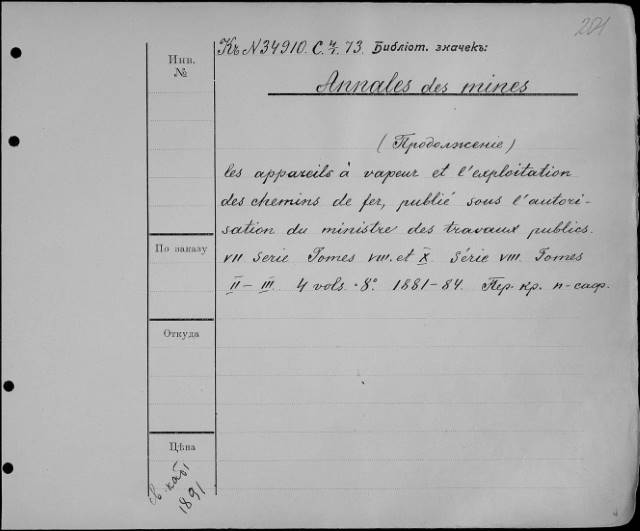 201
Къ N 34910. С. 4. 73. Библіот. значекъ:
Инв.
№
Annales des mines
(Продолженіе)
les appareils à vapeur et l'exploitation
des chemins de fer, publié sous l'autori-
sation du ministre des travaux publics.
VII Serie Tomes VIII. et X. Série VIII. Tomes
II–III. 4 vols. 8º. 1881–84. Пер. кр. п-саф.
По заказу
Откуда
Цѣна
1891